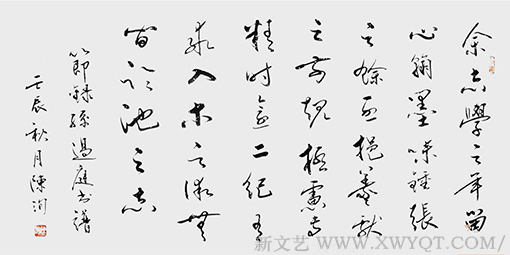 余志學之年留
心翰墨味鍾張
之餘烈挹羲獻
之前規極慮專
精時逾二紀有
乖入木之術無
間臨池之志
節錄孫過庭書譜
壬辰秋月陳
新文艺 / WWW.XWYQT.COM